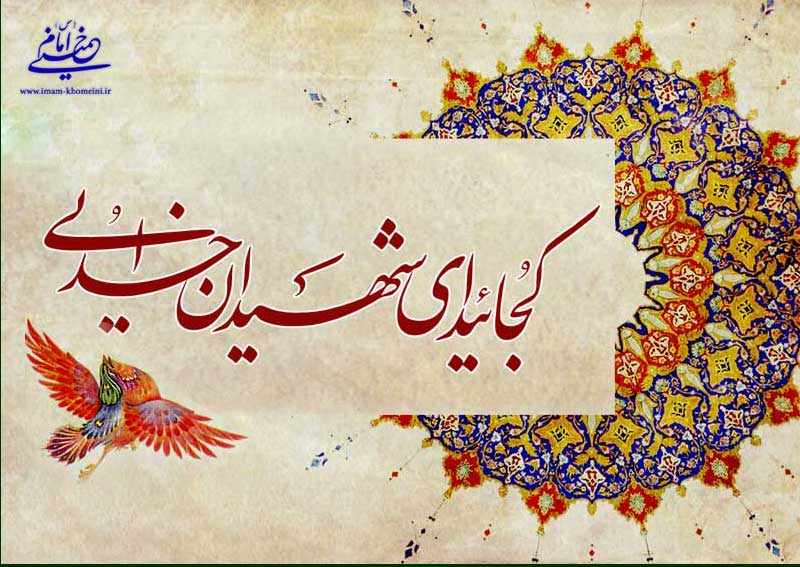 امام خمینی (س)
www.imam-khomeini.ir
کجائید ای شهیدان خدایی